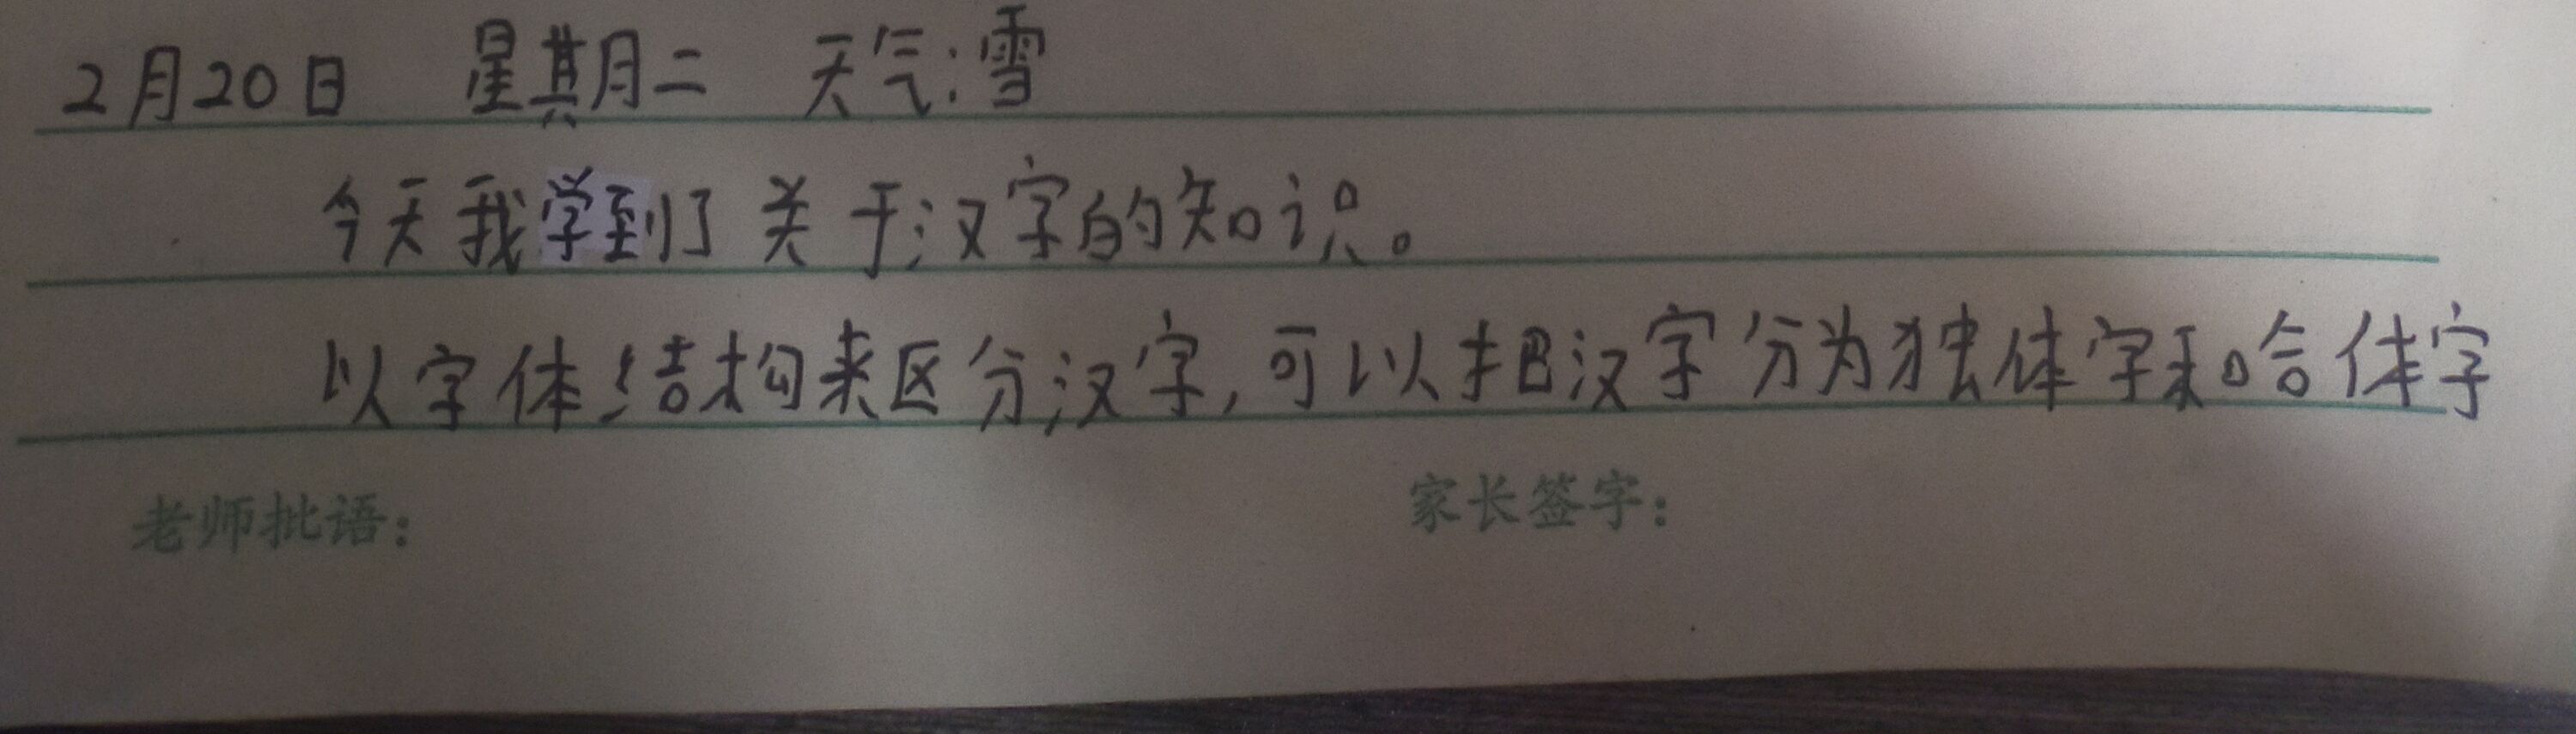 2月20日 星期二 天气:雪
今天我学到了关于汉字的知识。
以字体结构来区分汉字,可以把汉字分为独体字和合体字
老师批语: 家长签字: